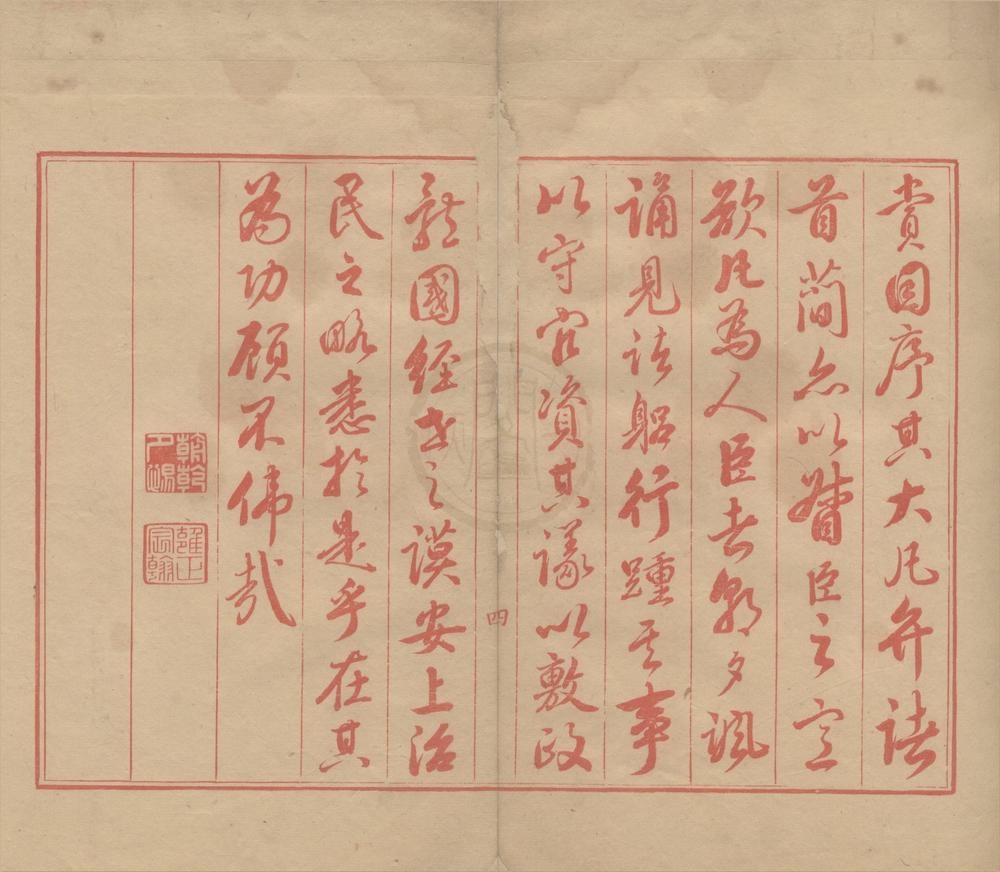 賞因序其大凡弁諸
首簡亦以臣之
欲凡為人臣者朝夕諷
誦見諸躬行踵其事
以守官資其議以敷政
四
體國經世之謨安上治
民之略悉於是乎在其
為功顧不偉哉
朝乾夕惕
雍正宸翰